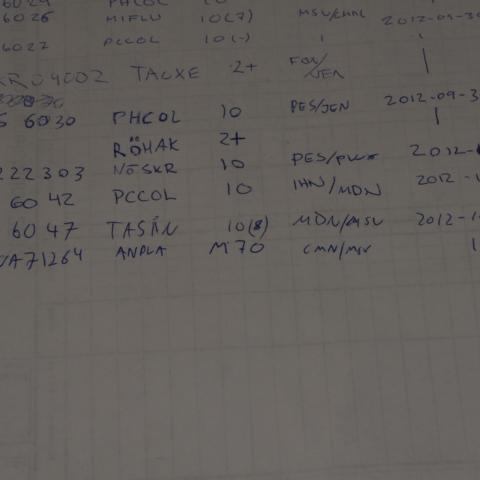 6026 MIFLU 10(7) MSV/EMN 2012-09-30
6027 PCCOL 10(-) 1
KR04002 TACXE 2+ FOX/JEN
6030 PHCOL 10 PES/JEN 2012-09-3
RÖHAK 2+
222303 NESKR 10 PES/ 2012-
6042 PCCOL 10 IHN/MDN 2012-1
6047 TASIN 10(8) MDN/MSV 2012-1
VA71264 ANPLA M70 CMN/MSV 1